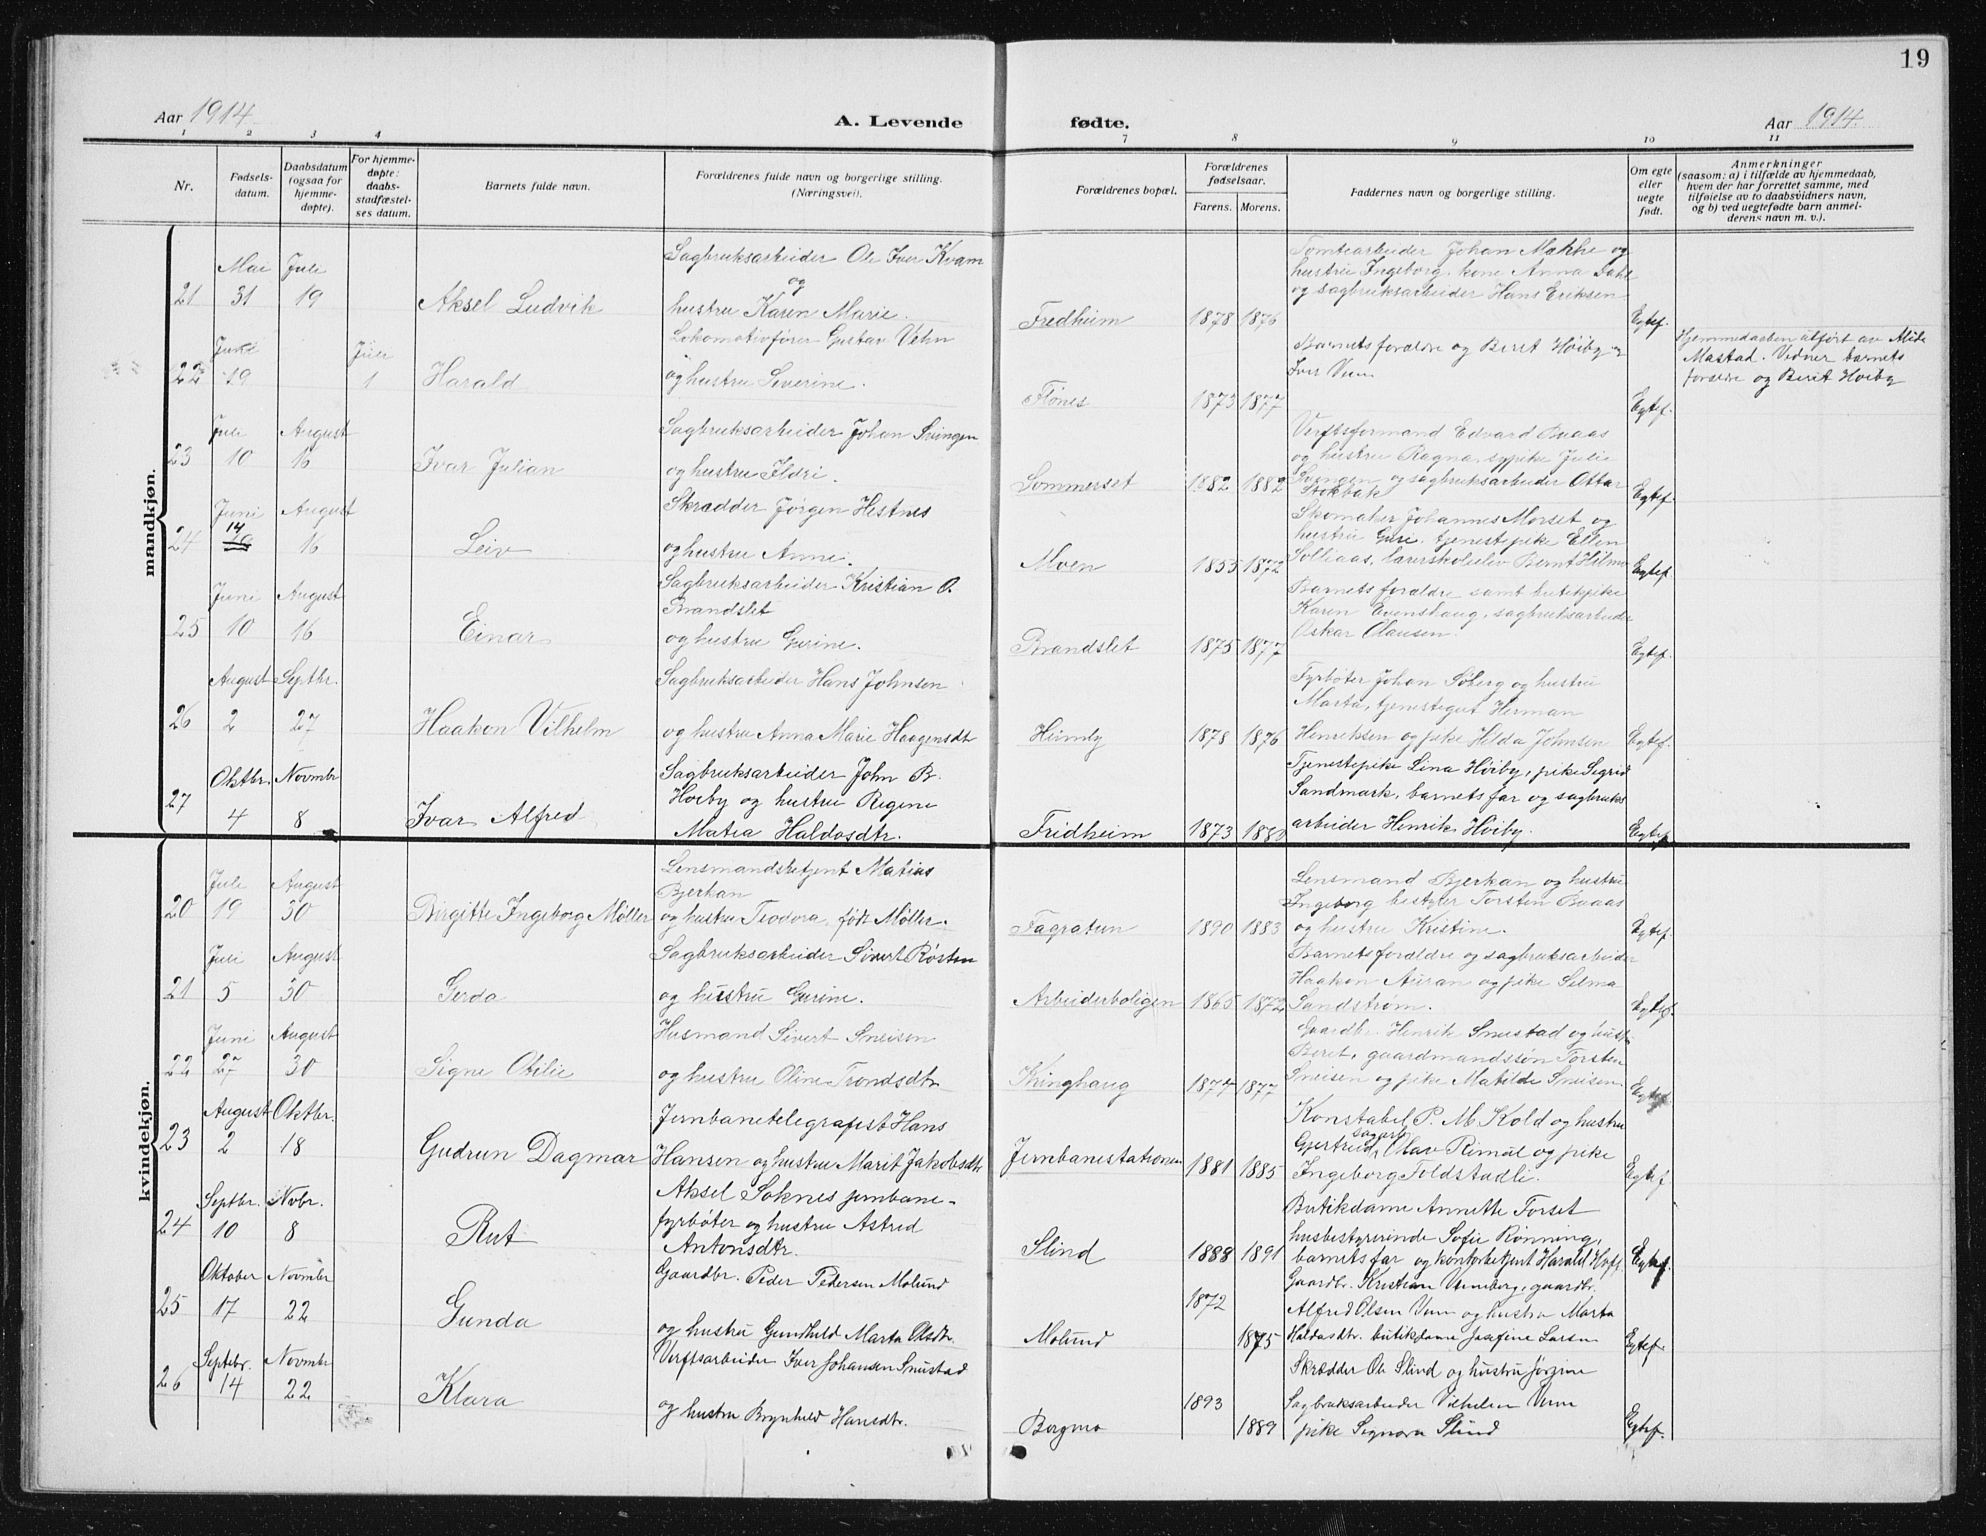 19
Aar 1914.
A. Levende fødte.
Aar 1914.
1 2 3 4 7 8 9 10 11
Nr.
Fødsels-
datum.
Daabsdatum
(ogsaa for
hjemme-
døpte).
For hjemme-
døpte:
daabs-
stadfæstel-
ses datum.
Barnets fulde navn.
Forældrenes fulde navn og borgerlige stilling.
(Næringsvei).
Forældrenes bopæl.
Forældrenes
fødselsaar.
Farens. Morens.
Faddernes navn og borgerlige stilling.
Om egte
eller
uegte
født.
Anmerkninger
(saasom: a) i tilfælde av hjemmedaab,
hvem der har forrettet samme, med
tilføielse av to daabsvidners navn,
og b) ved uegtefødte barn anmel-
derens navn m. v.).
mandkjøn.
21
Mai 31
Juli 19
Aksel Ludvik
Sagbruksarbeider Ole Iver Kvam
og
hustru Karen Marie.
Fredheim
1878 1876
Tomtearbeider Johan Makke og
hustru Ingeborg, kone Anna Dahl
og sagbruksarbeider Hans Eriksen
Egtef.
22
19
Juli 1
Harald
Lokomotivfører Gustav Vehn
og hustru Severine.
Flønes
1873 1877
Barnets forældre og Beret Høiby og
Iver Vum
Egtef.
Hjemmedaaben utført av
Mastad. Vidner barnets
forældre og Berit Høiby
23
Juli 10
August 16
Ivar Julian
Sagbruksarbeider Johan Svingen
og hustru Ildri.
Sommerset
1882 1882
Verftsformand Edvard Buaas
og hustru Ragna, sypike Julie
Svingen og sagbruksarbeider Ottar
Stokbak
Egtef.
24
Juni 14
August 16
Leiv
Skrædder Jørgen Hestnes
og hustru Anne.
Moen
1855 1872
Skomaker Johannes Morset og
hustru Guri, tjenestepike Ellen
Solliaas, lærerskoleelev Bernt Hilmo
Egtef.
25
Juni 10
August 16
Einar
Sagbruksarbeider Kristian O.
Brandslet
og hustru Gurine.
Brandslet
1875 1877
Barnets forældre samt
Karen Evenshaug, sagbruksarbeider
Oskar Olausen.
Egtef.
26
August 2
Septbr. 27
Haakon Vilhelm
Sagbruksarbeider Hans Johnsen
og hustru Anna Marie Haagensdt
Heimly
1878 1876
Fyrbøter Johan Soberg og hustru
Marta, tjenestegut Herman
Henriksen og pike Hilda Johnsen
Egtef.
27
Oktbr. 4
Novmbr 8
Ivar Alfred
Sagbruksarbeider John B.
Høiby og hustru Regine
Matea Haldosdtr.
Fridheim
1873
Tjenestepike Lina Høiby, pike Sigrid
Sandmark, barnets far og sagbruks
arbeider Henrik Høiby.
Egtef
kvindekjøn.
20
Juli 19
August 30
Birgitte Ingeborg Møller
Lensmandsbetjent Matias
Bjerkan
og hustru Teodora, født Møller.
Fagratun
1890 1883
Lensmand Bjerkan og hustru
Ingeborg bestyrer Torsten Buaas
og hustru Kristine.
Egtef.
21
Juli 5
August 30
Gerda
Sagbruksarbeider Sivert Røsten
og hustru Gurine.
Arbeiderboligen
1865 1872
Barnets forældre og sagbruksarbeider
Haakon Auran og pike Selma
Sandstrøm.
Egtef.
22
Juni 27
August 30
Signe Otilie
Husmand Sivert Sneisen
og hustru Oline Trondsdtr
Kringhaug
1877 1877
Gaardbr. Henrik Smustad og hustr
Beret, gaardmandssøn Torsten
Sneisen og pike Matilde Sneisen
Egtef
23
August 2
Oktbr. 18
Gudrun Dagmar
Jernbanetelegrafist Hans
Hansen og hustru Marit Jakobsdtr
Jernbanestationen
1881 1885
Konstabel P. M. Kold og hustru
Gjertrud, sagarb Olav Rimul og pike
Ingeborg Foldstadli.
Egtef
24
Septbr. 10
Novbr. 8
Rut
Aksel Soknes jernbane-
fyrbøter og hustru Astrid
Antonsdtr.
Slind
1888 1891
Butikdame Annette Forset
husbestyrerinde Sofie Rønning,
barnets far og kontorbetjent Harald Hoff
Egtef.
25
Oktober 17
Novmbr 22
Gunda
Gaardbr. Peder Pedersen Molund
og hustru Gundhild Marta Olsdtr.
Molund
1872
1875
Gaardbr. Kristian Venneberg, gaardbr.
Alfred Olsen Vum og hustru Marta
Haldosdtr. butikdame Josefine Larsen
Egtef.
26
Septebr. 14
Novmbr 22
Klara
Verftsarbeider Iver Johansen Smustad
og hustru Brynhild Hansdtr.
Borgmo
1893
1889
Skrædder Ole Slind og hustru Jørgine
Sagbruksarbeider Vilhelm Vum
pike Signora Slind
Egtef.